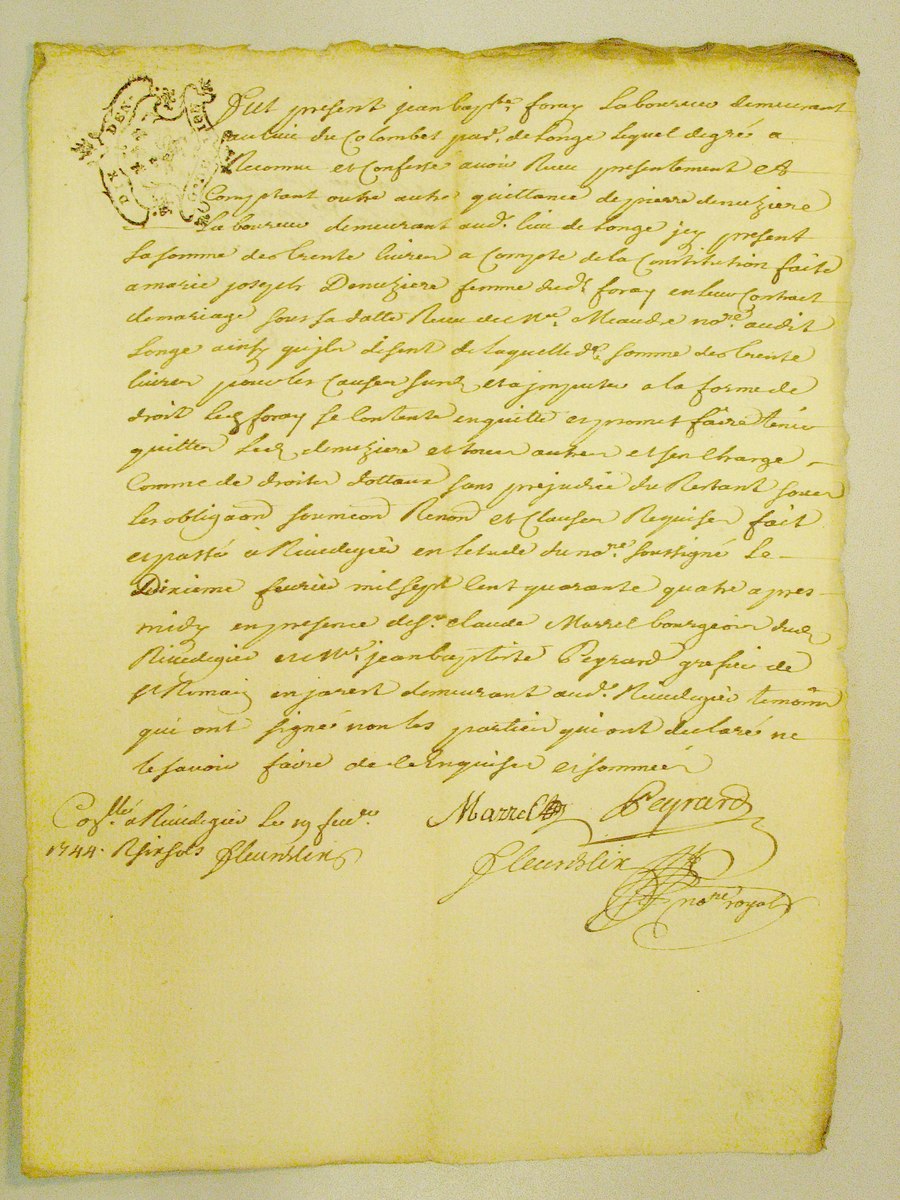 DIX DEN.
Fut present jean bapte. foray laboureur demeurant
au lieu du Colombet par. de longe lequel de gré a
Reconnu et Confessé avoir Receu presentement et
Comptant outre autre quittance de pierre denuziere
laboureur demeurant aud. lieu de longe jcy present
la somme de trente livres a Compte de la Constitution faite
a marie joseph Denuziere femme dud. foray en leur Contract
de mariage sous sa datte Receu de Me. Meaude nore. audit
longe ainsy qu'jls disent de laquelle de. somme de trente
livres pour les Causes sus et a imputer a la forme de
droit led foray se contente en quitte et promet faire tenir
quitte led denuziere et tous autres et s'en Charge
Comme de droits dottaux sans prejudice du Restant sous
les obligaons soumeons Renons et Clauses Requises fait
et passé à Rivedegier en letude du nore. soussigné le
Dixieme fevrier mil sept Cent quarante quatre apres
midy en presence de sr. claude Marrel bourgeois dud
Rivedegier et Me. jean baptiste Peyrard grefier de
st Romain en jarest demeurant aud. Rivedegier temoins
qui ont signé non les parties qui ont declaré ne
le savoir faire de ce Enquises et sommées
Marrel Peyrard
Coллé à Rivedegier le 19 fevr.
1744. R six sols fleurdelix
fleurdelix
nore royal